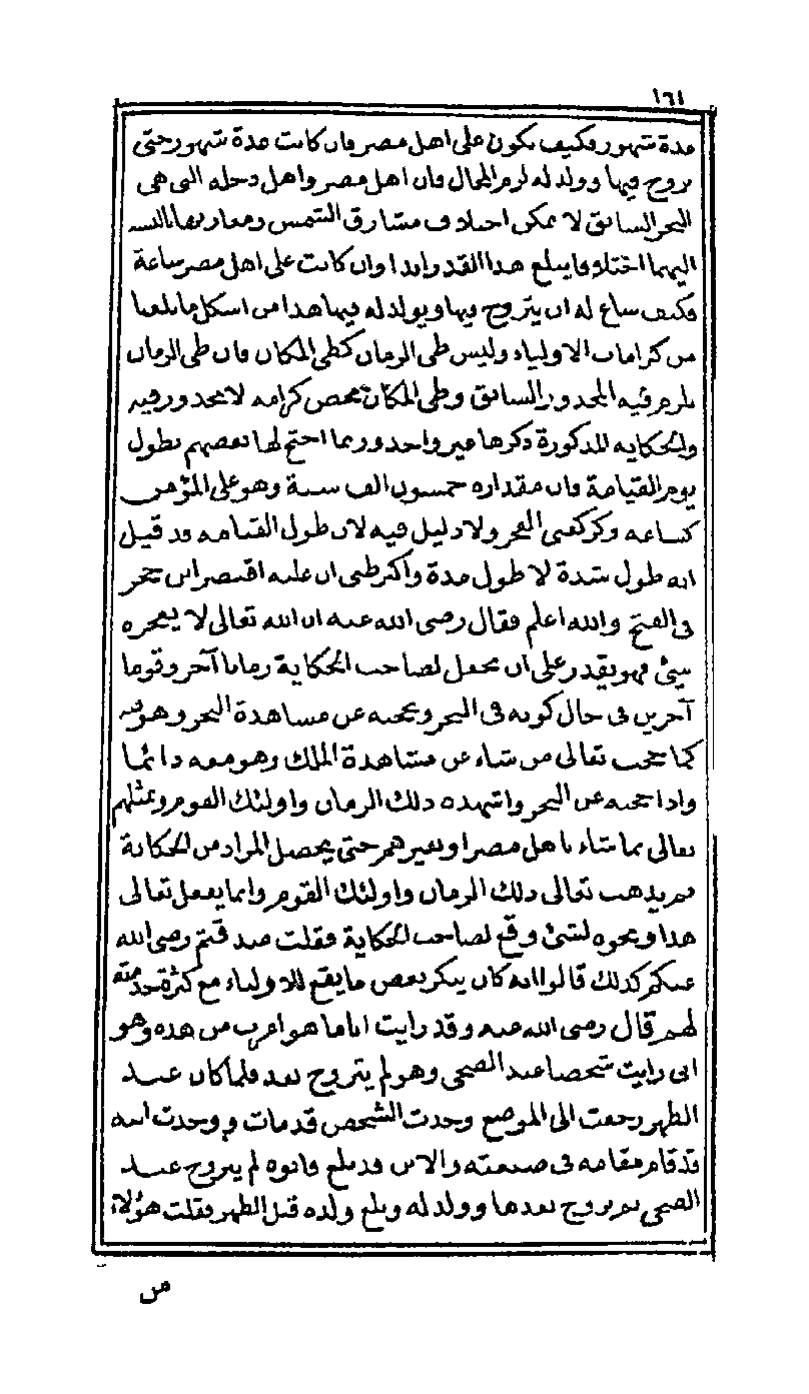 ١٦١
مدة شهور وكيف يكون على اهل مصر فان كانت مدة شهور حتى
تزوج فيها وولد له لزم المحال فان اهل مصر واهل دجلة التى هى
البحر السابق لا يمكن اختلاف مشارق الشمس ومغاربها بالنسبة
اليهما اختلافا يبلغ هذا القدر ابدا وان كانت على اهل مصر ساعة
فكيف ساغ له ان يتزوج فيها ويولد له فيها هذا من اشكل ما بلغنا
من كرامات الاولياء وليس طى الزمان كطى المكان فان طى الزمان
يلزم فيه المحذور السابق وطى المكان محض كرامة لا محذور فيه
والحكاية المذكورة ذكرها غير واحد وربما احتج لها بعضهم بطول
يوم القيامة فان مقداره خمسون الف سنة وهو على المؤمن
كساعة وكركعتى الفجر ولا دليل فيه لان طول القيامة قد قيل
انه طول شدة لا طول مدة واكبر ظنى ان عليه اقتصر ابن حجر
فى الفتح والله اعلم فقال رضى الله عنه ان الله تعالى لا يعجزه
شئ فهو يقدر على ان يجعل لصاحب الحكاية زمانا آخر وقوما
آخرين فى حال كونه فى البحر ويحجبه عن مشاهدة البحر وهو فيه
كما حجب تعالى من شاء عن مشاهدة الملك وهو معه دائما
واذا حجبه عن البحر واشهده ذلك الزمان واولئك القوم ويمثلهم
تعالى بما شاء باهل مصر او غيرهم حتى يحصل المراد من الحكاية
ثم يذهب تعالى ذلك الزمان واولئك القوم وانما يفعل تعالى
هذا ونحوه لشئ وقع لصاحب الحكاية فقلت صدقتم رضى الله
عنكم كذلك قالوا انه كان ينكر بعض ما يقع للاولياء مع كثرة خدمته
لهم قال رضى الله عنه وقد رايت اياما هو اغرب من هذه وهو
انى رايت شخصا عند الضحى وهو لم يتزوج بعد فلما كان عند
الظهر رجعت الى الموضع وجدت الشخص قد مات ووجدت ابنه
قد قام مقامه فى صنعته والابن قد بلغ فابوه لم يتزوج عند
الضحى ثم تزوج بعدها وولد له وبلغ ولده قبل الظهر فقلت هؤلاء
من